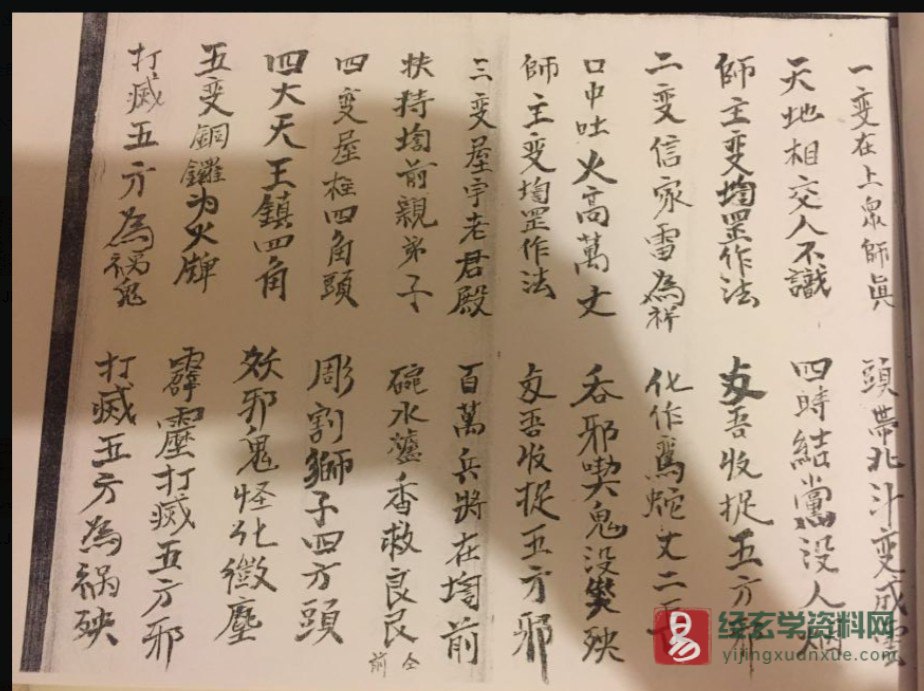 一变在上衆師眞　頭帶北斗变成雲
天地相交人不識　四時結黨没人
師主变壇罡作法　反吾收捉五方
二变信家雷為祥　化作鳥蛇丈二
口中吐火高萬丈　吞邪喫鬼没殃
師主变罡作法　吾收捉五方邪
三变屋宇老君殿　百萬兵將在前
扶持前親弟子　碗水爐香救良民
仝前
四变屋柱四角頭　彫割獅子四方頭
四大天王鎮四角　妖邪鬼怪化微塵
五变銅鑼为火牌　霹靂打滅五方邪
打滅五方為禍鬼　打滅五方為祸殃
易
经玄学资料网
yijingxuanxue.com